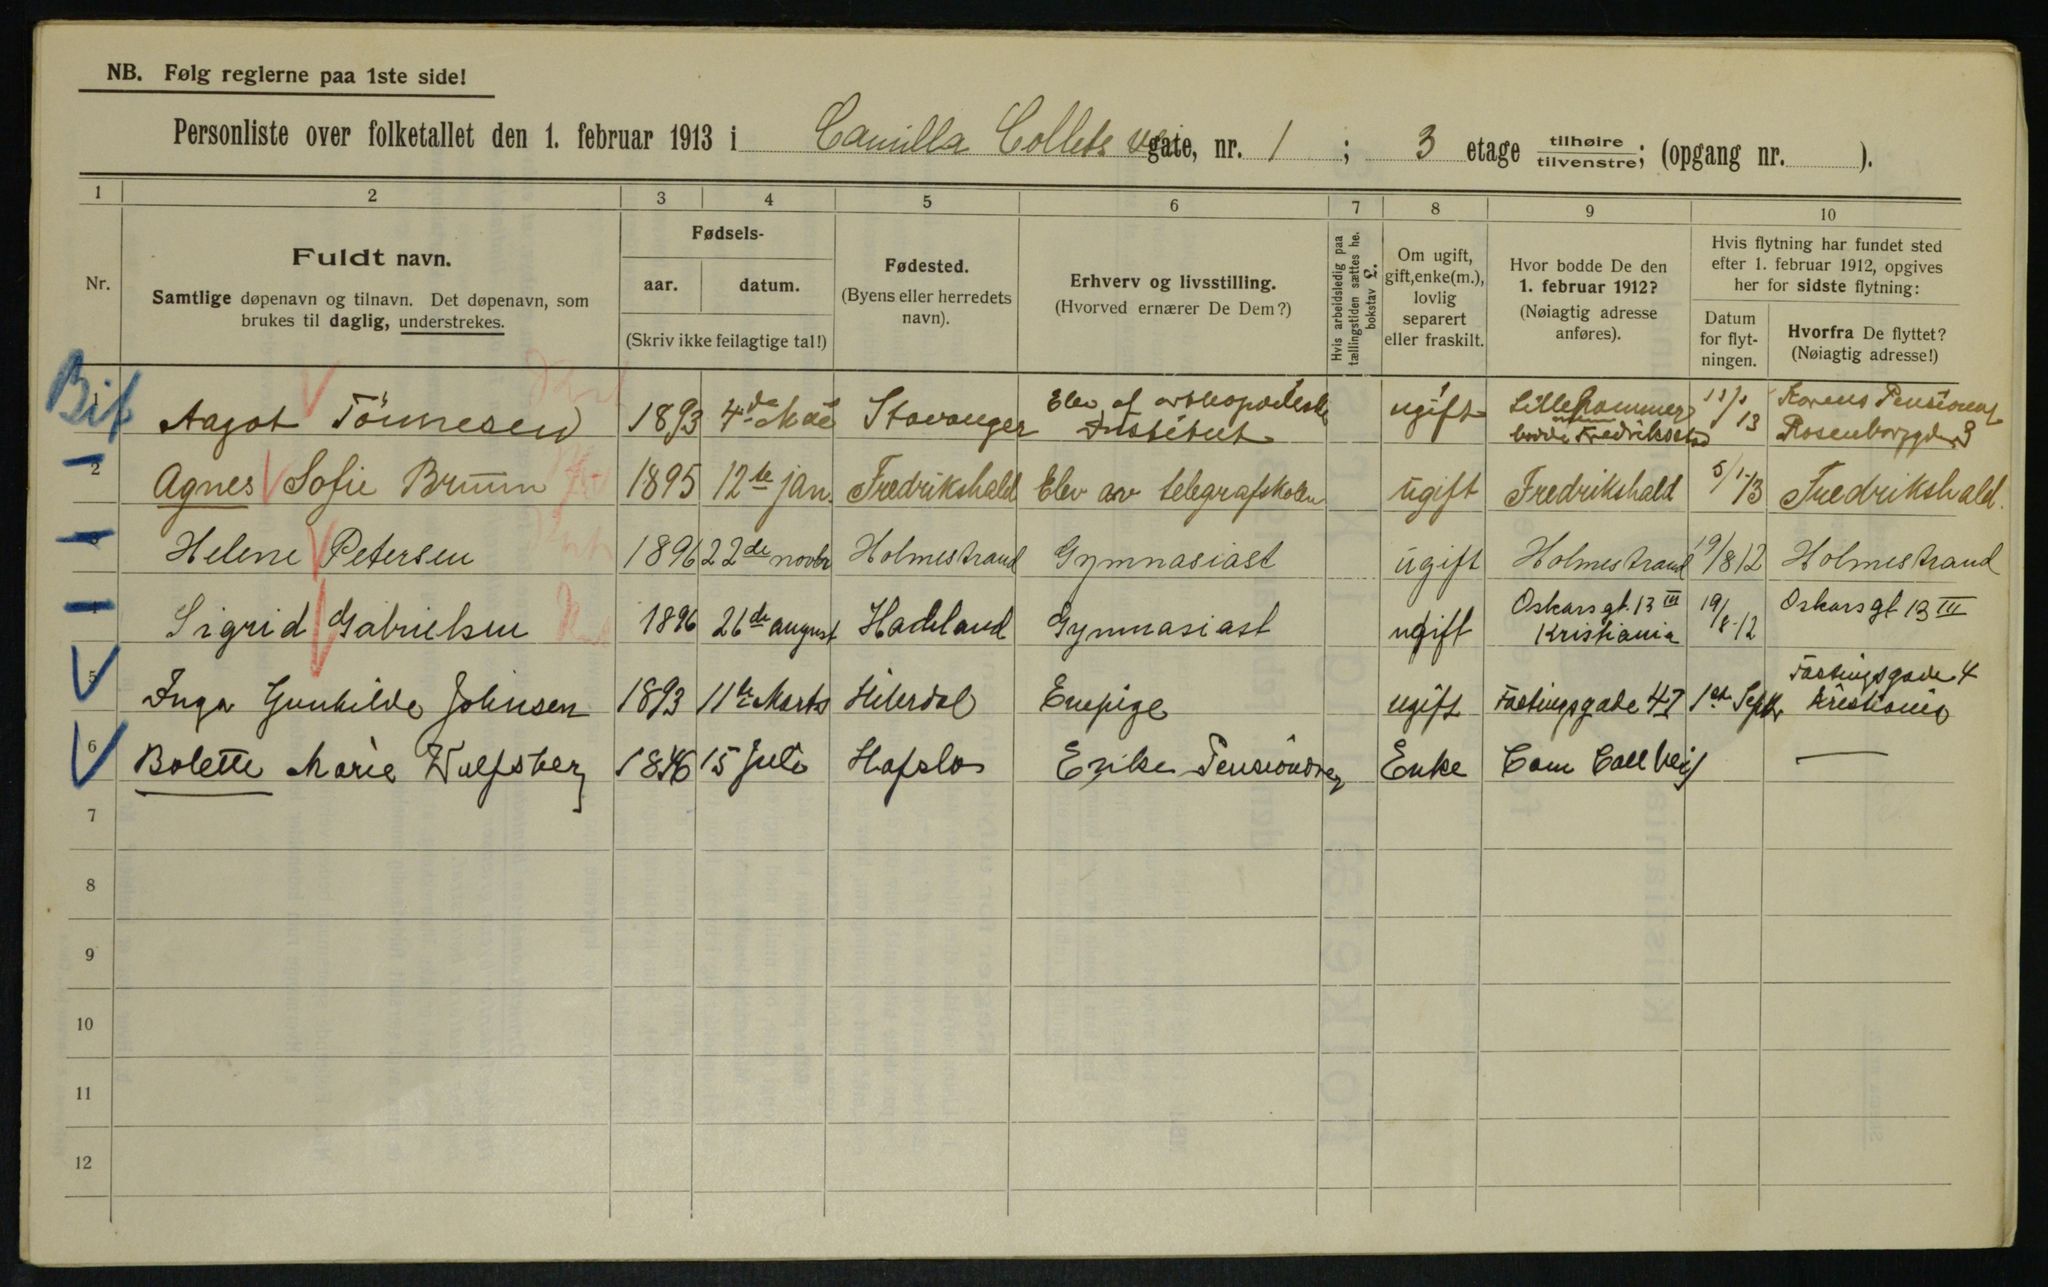 NB. Følg reglerne paa 1ste side!
Personliste over folketallet den 1. februar 1913 i Camilla Collets vei gate, nr. 1 ; 3 etage tilhøire tilvenstre; (opgang nr. ).
1 2 3 4 5 6 7 8 9 10
Nr.
Fuldt navn.
Samtlige døpenavn og tilnavn. Det døpenavn, som
brukes til daglig, understrekes.
Fødsels-
aar. datum.
(Skriv ikke feilagtige tal!)
Fødested.
(Byens eller herredets
navn).
Erhverv og livsstilling.
(Hvorved ernærer De Dem?)
Hvis arbeidsledig paa
tællingstiden sættes he.
bokstav L.
Om ugift,
gift, enke(m.),
lovlig
separert
eller fraskilt.
Hvor bodde De den
1. februar 1912?
(Nøiagtig adresse
anføres).
Hvis flytning har fundet sted
efter 1. februar 1912, opgives
her for sidste flytning:
Datum
for flyt-
ningen.
Hvorfra De flyttet?
(Nøiagtig adresse!)
Bif
1 Aagot Tönnesen 1893 4de Mai Stavanger Elev af Institut ugift Lillehammer bodde Fredrikstad 13 Pensionat
2 Agnes Sofie Bruun 1895 12te jan. Fredrikshald Elev av telegrafskolen ugift Fredrikshald 5/1-13 Fredrikshald.
3 Helene Petersen 1896 22de novbr Holmestrand Gymnasiast ugift Holmestrand 19/8 12 Holmestrand
4 Sigrid Gabrielsen 1896 26de august Hadeland Gymnasiast ugift Oskarsgt. 13 III Kristiania 19/8-12 Oskarsgt 13 III
5 Inga Gunhilde Johnsen 1893 11te Marts Hiterdal Enepige ugift Fastingsgade 4 I 1st Septbr Fastingsgade 4 Kristiania
6 Bolette Marie Wulfsberg 1846 15 Juli Hafslo Enke Pensionær Enke Cam Coll vei 1 —
7
8
9
10
11
12